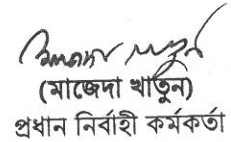 (মাজেদা খাতুন)
প্রধান নির্বাহী কর্মকর্তা